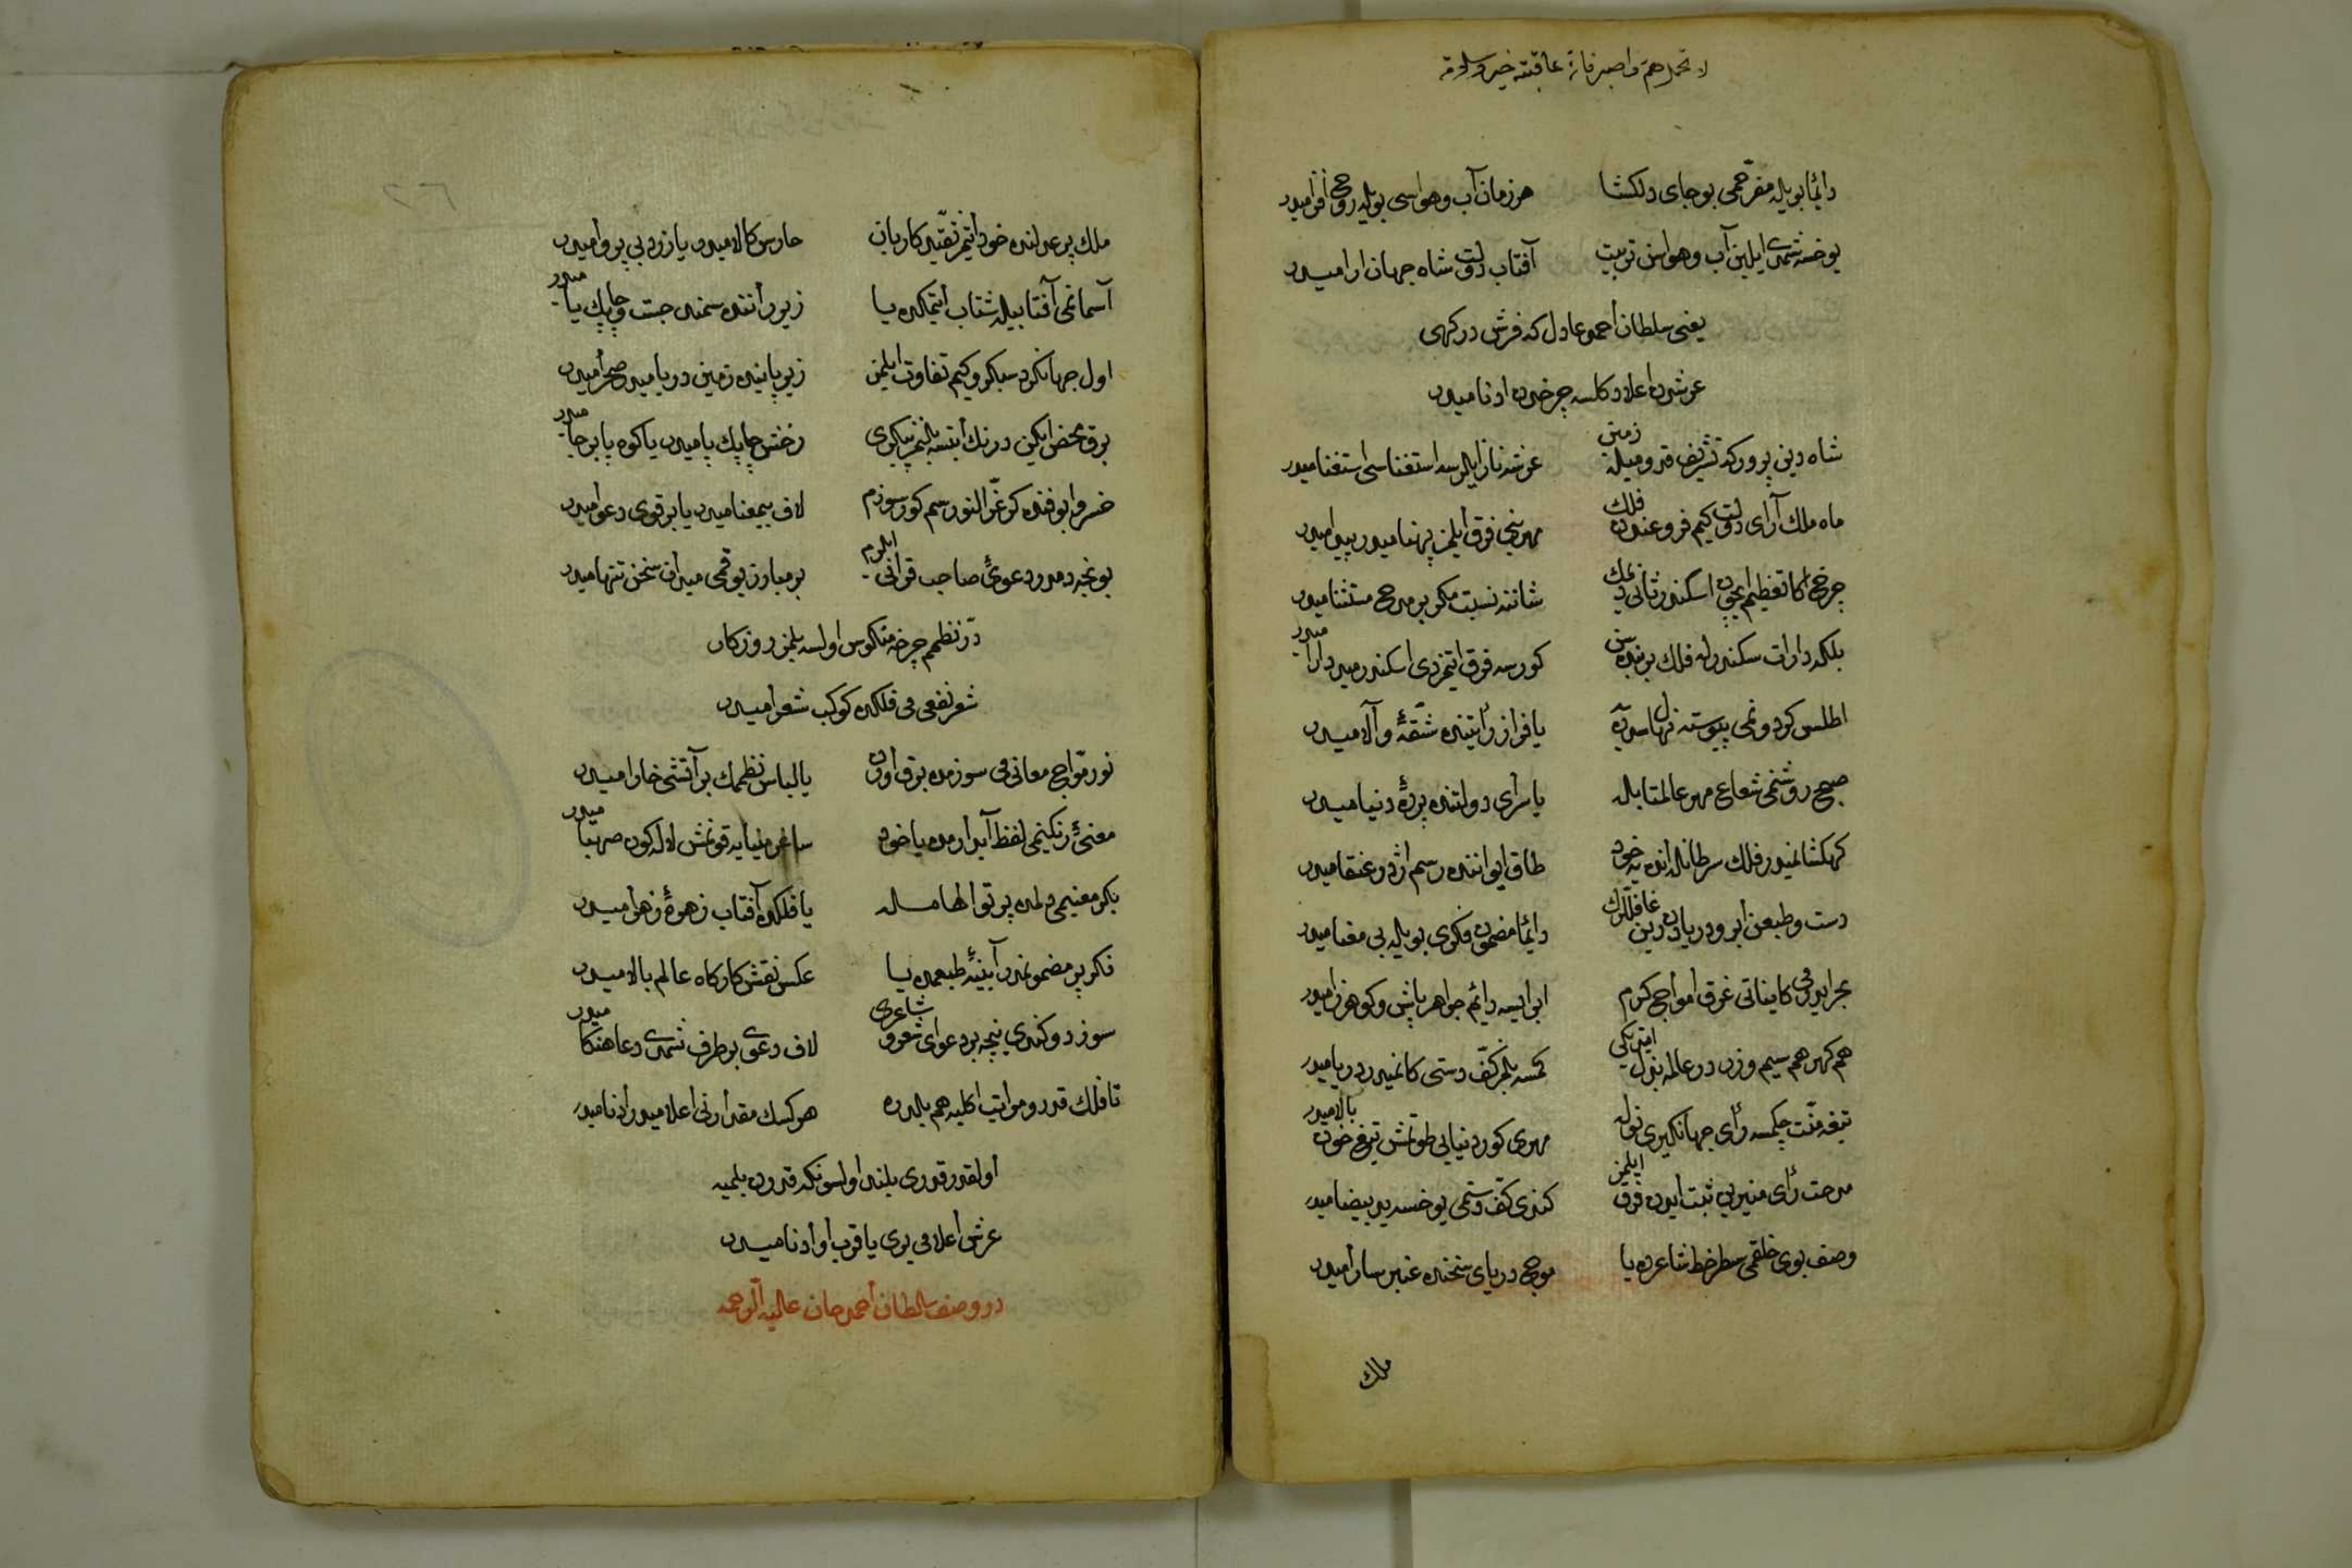 دائما بویله مفرحمی بو جای دلکشا هر زمان آب و هواسی بویله روح افزامیدر
یوخسه شمدی ایلین آب و هواسن تربیت آفتاب دولت شاه جهان ارامیدر
یعنی سلطان احمد عادل که فرش درکهی
عرشدن اعلادکلسه چرخدن ادنامیدر
شاه دین پرور که تشریف قدومیله زمین عرشه ناز ایلرسه استغناسی استغنامیدر
ماه ملك آرای دولت کیم فروغندن فلك مهرینی فرق ایلمز پنهامیدر پیدامیدر
چرخ اکا تعظیم ایچون اسکندر ثانی دیمك شاننه نسبت مکر بر مدح مستثنامیدر
بلکه دارات سکندرله فلك بر بنده سن کورسه فرق ایتمزدی اسکندرمیدر دارامیدر
اطلس کردونمی پیوسته یا فراز رأیتنده شقهٔ والامیدر
صبح روشنمی شعاع مهر عالمتابله یا سرای دولتنده پردهٔ دنیامیدر
کهکشانمیدر فلك سرطانله اندہ یه خود طاق ایواننده رسم اژدر و عنقامیدر
دست و طبعن ابر و دریادن دریغ غافللرك دائما مضمون فکری بویله بی معنامیدر
بحر ایدرمی کایناتی غرق امواج کرم ابر ایسه دایم جواهر پاش و کوهرزامیدر
هم کهر هم سیم و زر در عالمه بذل ایتدیکی کمسه بلمز کف دستی کانمیدر دریامیدر
تیغه منت چکمسه رأی جهانکیری نوله مهری کور دنیایی طوتمش تیغ خون بالامیدر
مدحت رأی منیرن ثبت ایدن فرق ایلمز کندی کف دستمی یوخسه ید بیضامیدر
وصف بوی خلقمی سطر خط شاعرده یا موج دریای سخنده عنبر سارامیدر
ملك
ملك پر عدلنده خود ایتمز تقید کاربان حارس کالامیدر یا زد بی پروامیدر
آسمانمی آفتابیله شتاب ایتمکده یا زیر راننده سمند جست و چاپك پامیدر
اول جهانکرد سبکرو کیم تفاوت ایلمز زیر پاینده زمین دریامیدر صحرامیدر
برق محض ایکن درنك ایتسه بلنمز پیکری رخش چاپك پامیدر یا کوه پا برجامیدر
خسروا بو فنده کر غرالنورسم کور سوزم لاف بیمعنامیدر یا بر قوی دعوامیدر
بو نجه دمدر دعوئ صاحب قرانی ایلرم بر مبارز یوقمی میدان سخن تنهامیدر
در نظمم چرخه منکوس اولسه بلمز روزکار
شعر نفعی می فلکده کوکب شعرامیدر
نور مواج معانی می سوزمده برق اوران یا لباس نظممك بر آتشی خارامیدر
معنئ رنکینمی لفظ آبدارمده یا خود ساغر مینایه قونمش لاله کون صهبامیدر
بکر معنیمی دلمده پرتو الهامله یا فلکده آفتاب زهرهٔ زهرامیدر
فکر پر مضمونمدر آیینهٔ طبعمده یا عکس نقش کارکاه عالم بالامیدر
سوز دوکندی نیجه بر دعوای شعر و شاعری لاف دعوی بر طرف شمدی دعا هنکامیدر
تا فلك قدر و مراتب اکلیه هم بلدره هر کسك مقدارنی اعلامیدر ادنامیدر
اولقدر قدری بلند اولسونکه قدردن بلمیه
عرش اعلامی یری یا قرب او ادنامیدر
در وصف سلطان احمد خان علیه الرحمه